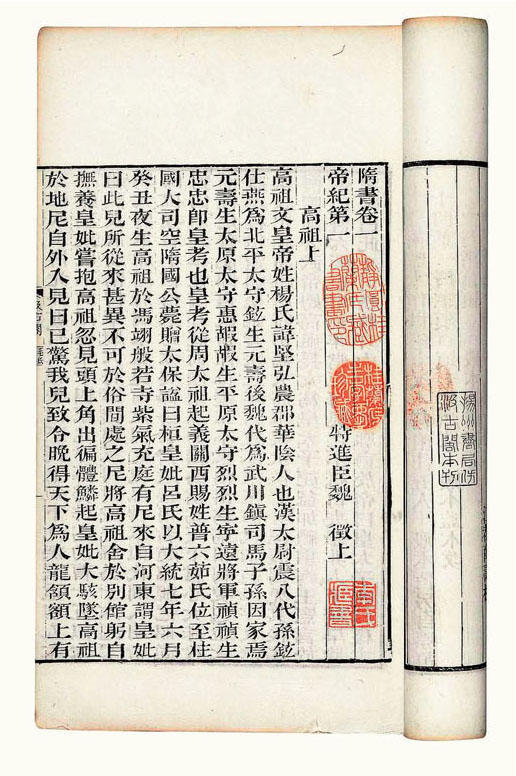 隋書卷一
帝紀第一 特進臣魏 徵上
高祖上
高祖文皇帝姓楊氏諱堅弘農郡華陰人也漢太尉震八代孫鉉
仕燕爲北平太守鉉生元壽後魏代爲武川鎮司馬子孫因家焉
元壽生太原太守惠嘏嘏生平原太守烈烈生寧遠將軍禎禎生
忠忠卽皇考也皇考從周太祖起義關西賜姓普六茹氏位至柱
國大司空隋國公薨贈太保諡曰桓皇妣呂氏以大統七年六月
癸丑夜生高祖於馮翊般若寺紫氣充庭有尼來自河東謂皇妣
曰此兒所從來甚異不可於俗間處之尼將高祖舍於別館躬自
撫養皇妣嘗抱高祖忽見頭上角出徧體鱗起皇妣大駭墜高祖
於地尼自外入見曰已驚我兒致令晚得天下爲人龍頷額上有